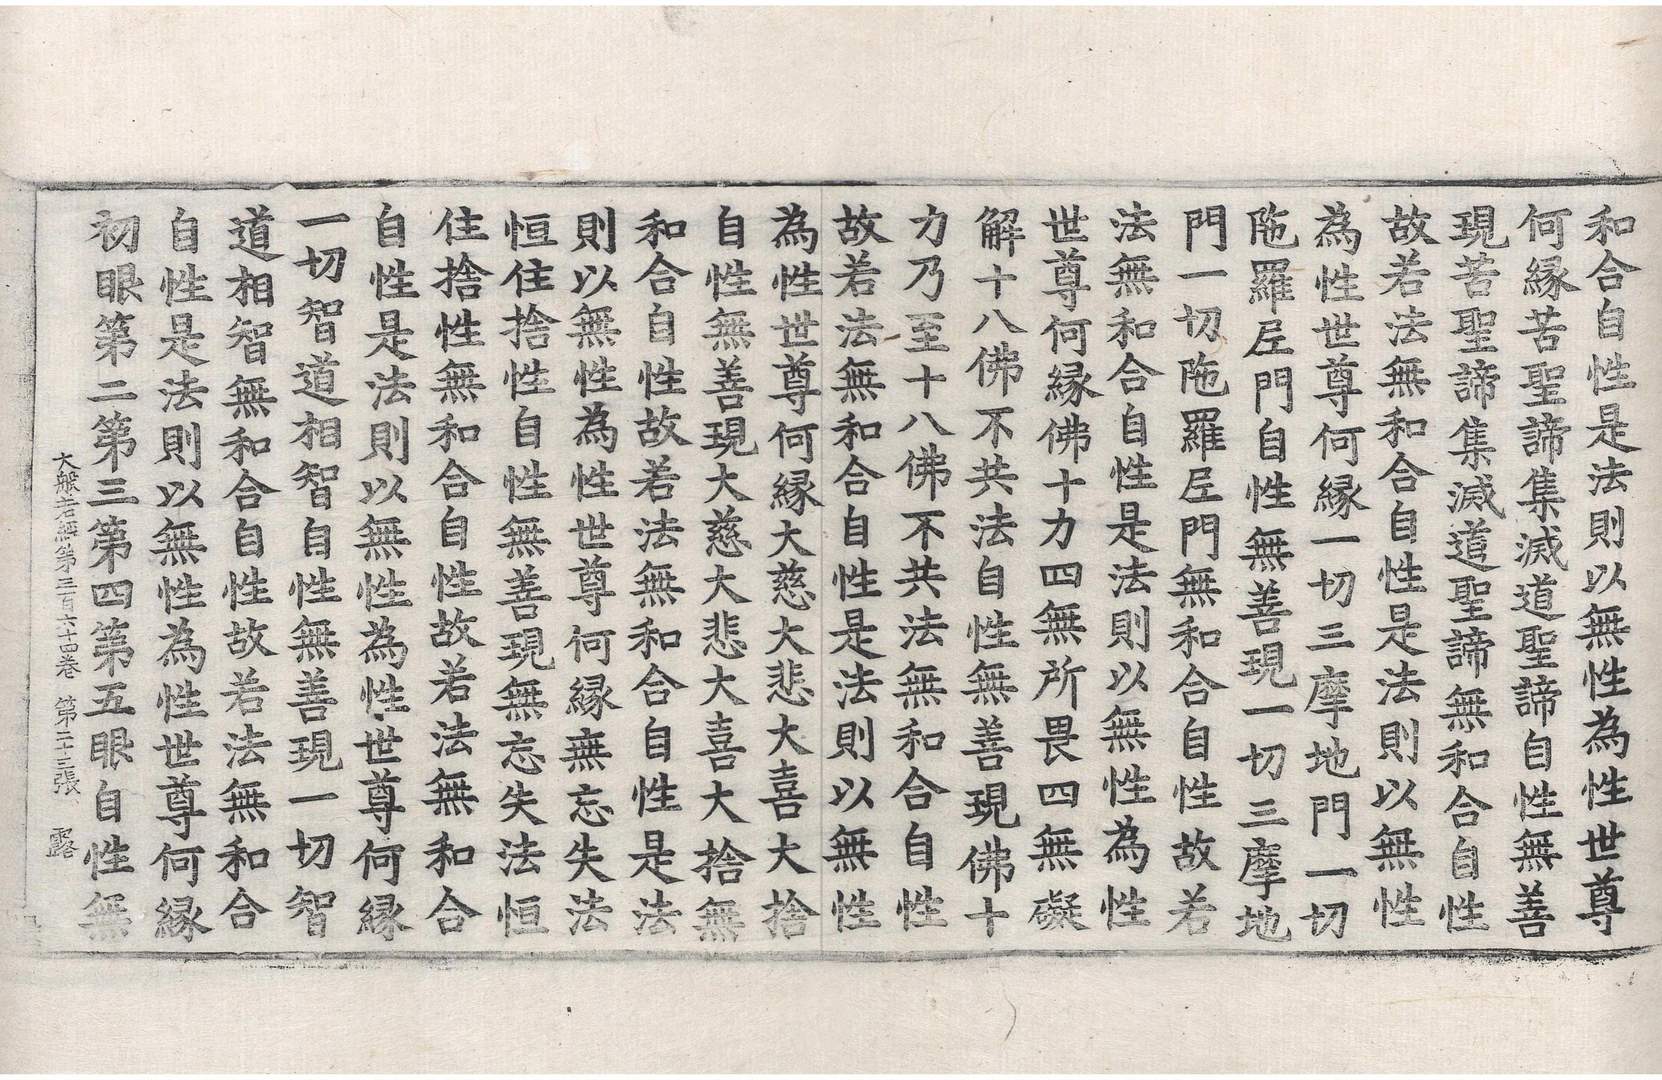 和合自性是法則以無性為性世尊
何縁苦聖諦集滅道聖諦自性無善
現苦聖諦集滅道聖諦無和合自性
故若法無和合自性是法則以無性
為性世尊何縁一切三摩地門一切
陁羅尼門自性無善現一切三摩地
門一切陁羅尼門無和合自性故若
法無和合自性是法則以無性為性
世尊何縁佛十力四無所畏四無礙
解十八佛不共法自性無善現佛十
力乃至十八佛不共法無和合自性
故若法無和合自性是法則以無性
為性世尊何縁大慈大悲大喜大捨
自性無善現大慈大悲大喜大捨無
和合自性故若法無和合自性是法
則以無性為性世尊何縁無忘失法
恒住捨性自性無善現無忘失法恒
住捨性無和合自性故若法無和合
自性是法則以無性為性世尊何縁
一切智道相智自性無善現一切智
道相智無和合自性故若法無和合
自性是法則以無性為性世尊何縁
初眼第二第三第四第五眼自性無
大般若經第三百六十四卷 第二十三張 露